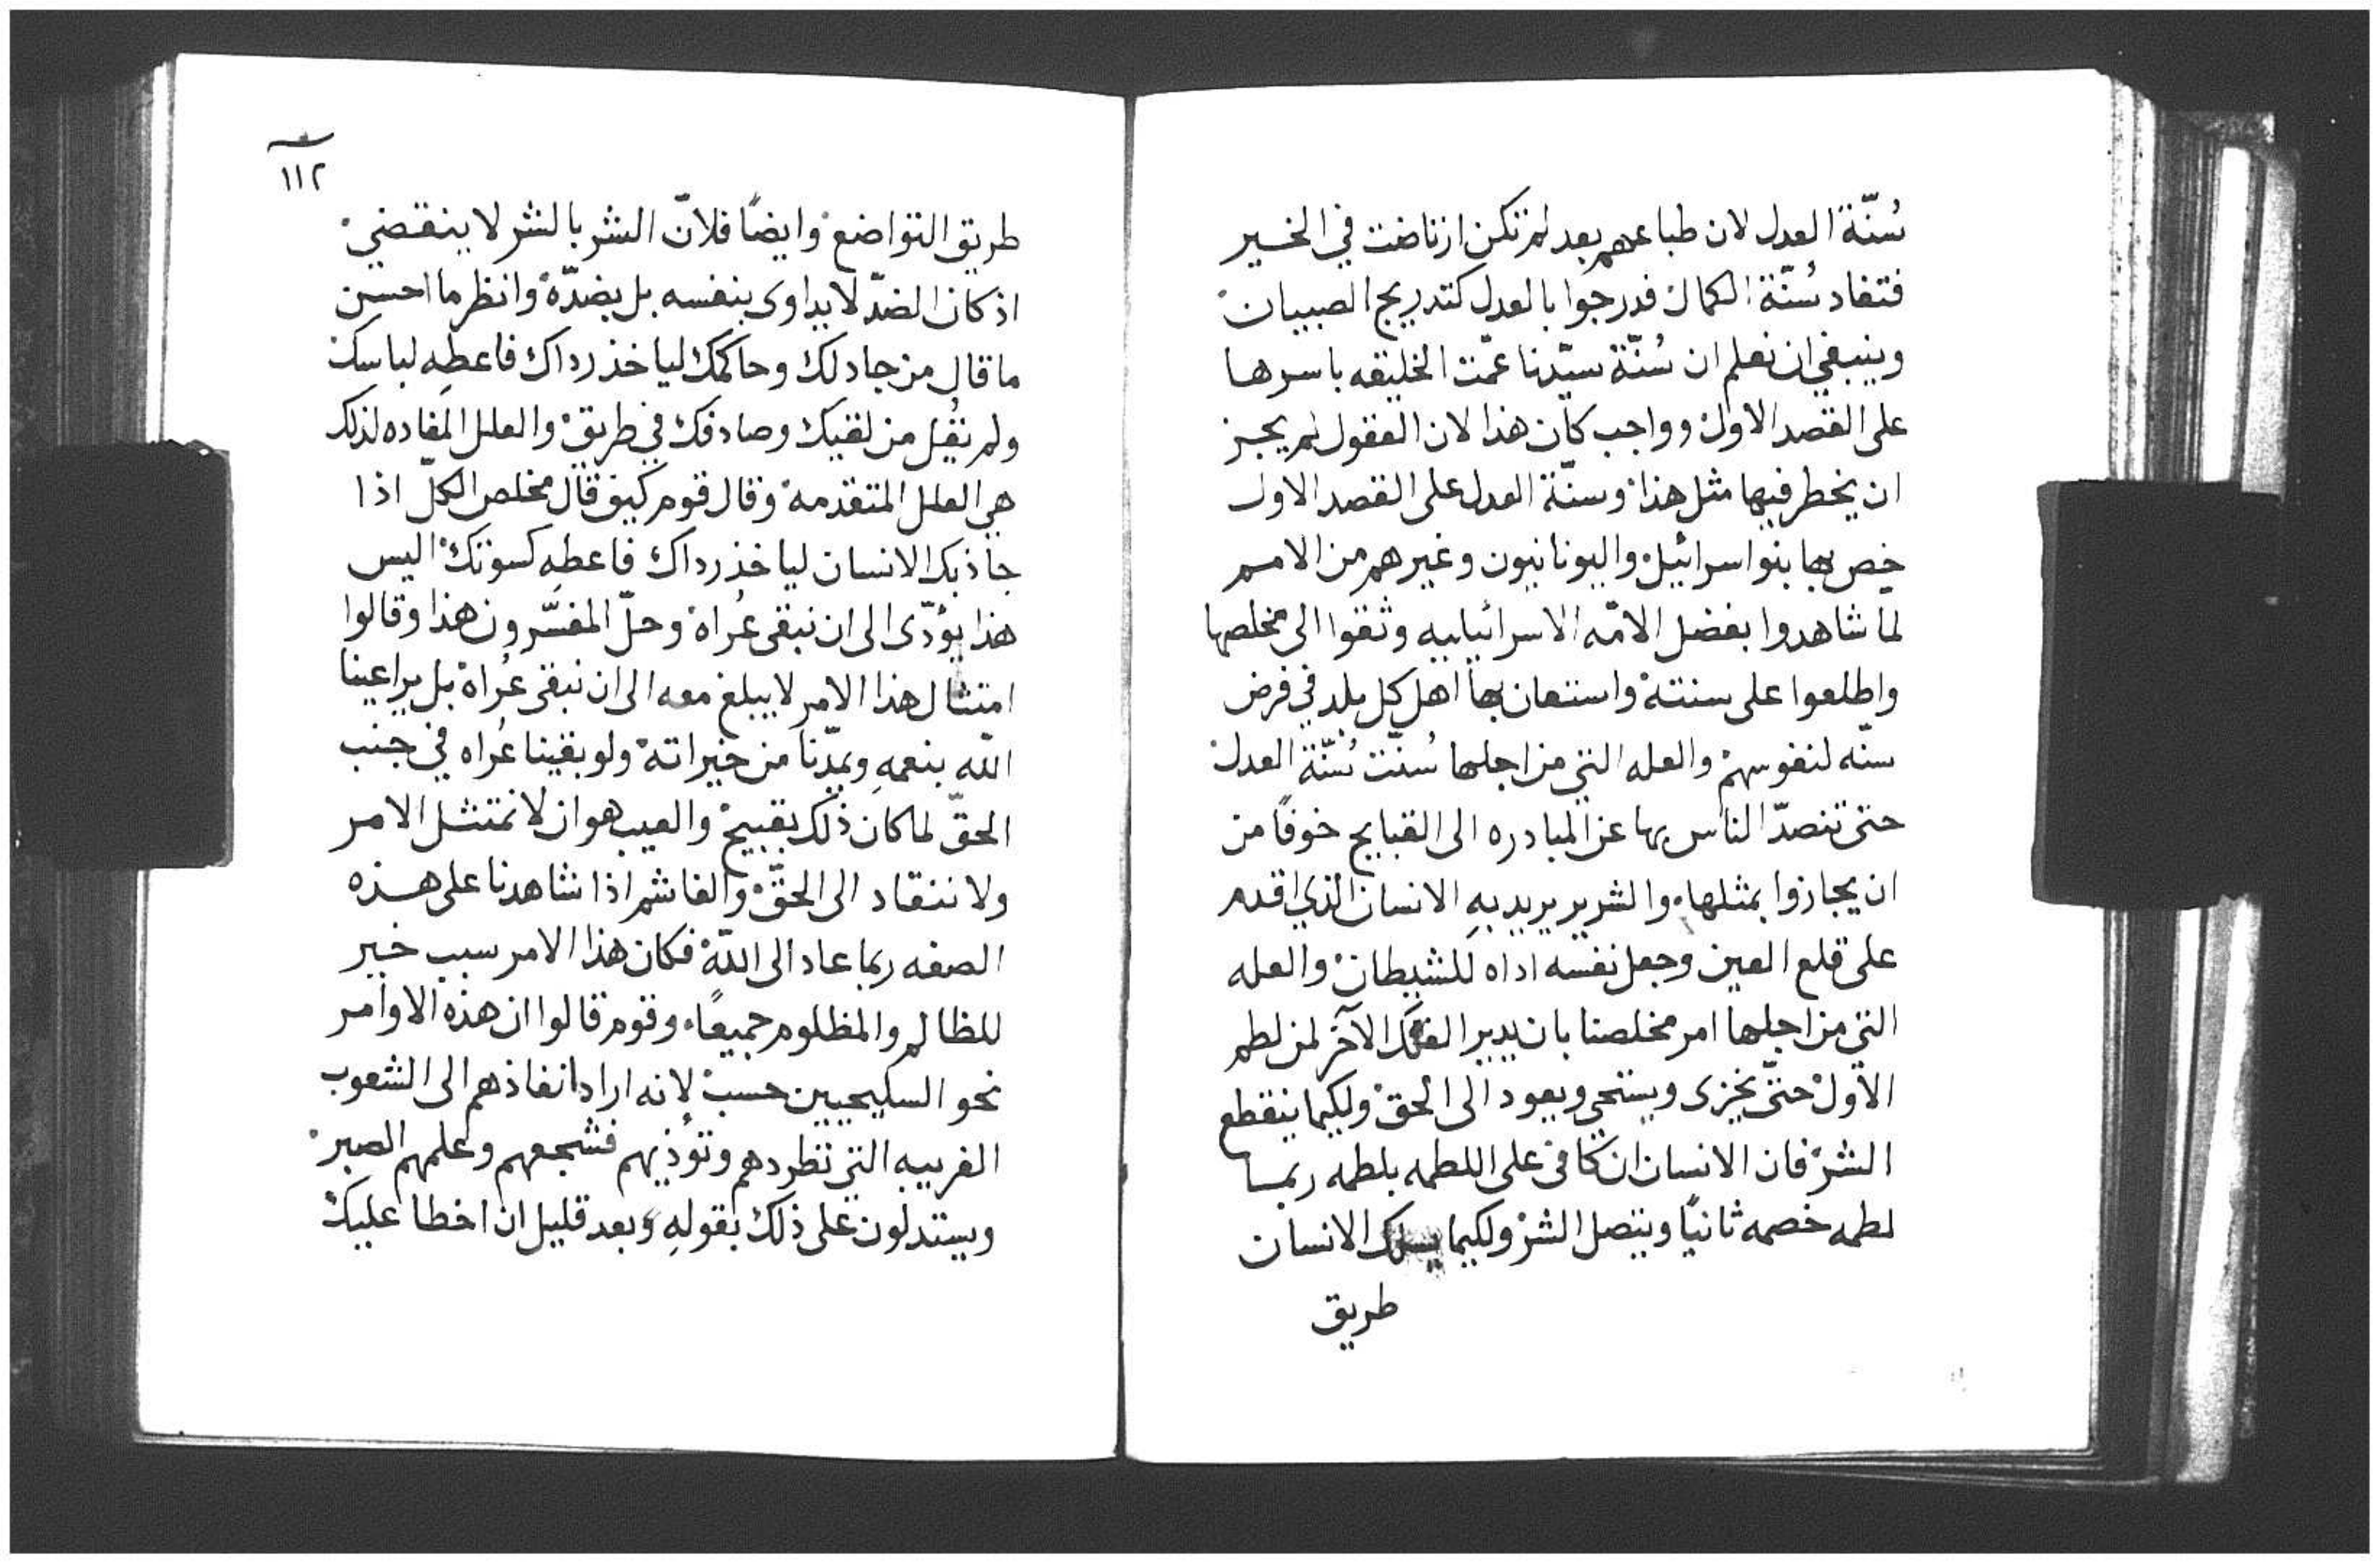 سُنّة العدل لان طباعهم بعد لم تكن ارتاضت في الخير
فتفاد سُنّة الكمال فدرجوا بالعدل كتدريج الصبيان
وينبغي ان نعلم ان سُنّة سيّدنا عمّت الخليقه باسرها
على القصد الاول وواجب كان هذا لان العقول لم يجز
ان يخطر فيها مثل هذا وسنّة العدل على القصد الاول
خص بها بنو اسرائيل واليونانيون وغيرهم من الامم
لما شاهدوا بفضل الامّه الاسرائيليه وثقوا الى مخلصها
واطلعوا على سنته واستعان بها اهل كل بلد في فرض
سنّه لنفوسهم والعله التي من اجلها سُنّت سُنّة العدل
حتى تنصدّ الناس بها عن المبادره الى القبايح خوفًا من
ان يجازوا بمثلها والشرير يريد بهِ الانسان الذي اقدم
على قلع العين وجعل نفسه اداه للشيطان والعله
التي من اجلها امر مخلصنا بان يدير الفك الآخر لمن لطم
الاول حتّى يخزى ويستحي ويعود الى الحق ولكيما ينقطع
الشرّ فان الانسان ان كافى على اللطمه بلطمه ربما
لطمه خصمه ثانيًا ويتصل الشرّ ولكيما يسلك الانسان
طريق
١١٢
طريق التواضع وايضًا فلانّ الشر بالشر لا ينقضي
اذ كان الضدّ لا يداوى بنفسه بل بضدّه وانظر ما احسن
ما قال من جادلك وحاكمك لياخذ رداك فاعطهِ لباسك
ولم يقُل من لقيك وصادفك في طريق والعلل المفاده لذلك
هي العلل المتقدمه وقال قوم كيف قال مخلص الكلّ اذا
جاذبك الانسان لياخذ رداك فاعطهِ كسوتك اليس
هذا يؤدّى الى ان نبقى عُراه وحلّ المفسّرون هذا وقالوا
امتثال هذا الامر لا يبلغ معه الى ان نبقى عُراه بل يراعينا
الله بنعمهِ ويمدّنا من خيراته ولو بقينا عُراه في جنب
الحقّ لما كان ذلك بقبيح والعيب هو ان لا نمتثل الامر
ولا ننقاد الى الحقّ والغاشم اذا شاهدنا على هذه
الصفه ربما عاد الى الله فكان هذا الامر سبب خير
للظالم والمظلوم جميعًا وقوم قالوا ان هذه الاوامر
نحو السليحيين حسب لانه اراد انفاذهم الى الشعوب
الغريبه التي تطردهم وتؤذيهم فشجعهم وعلمهم الصبر
ويستدلون على ذلك بقولهِ وبعد قليل ان اخطا عليك